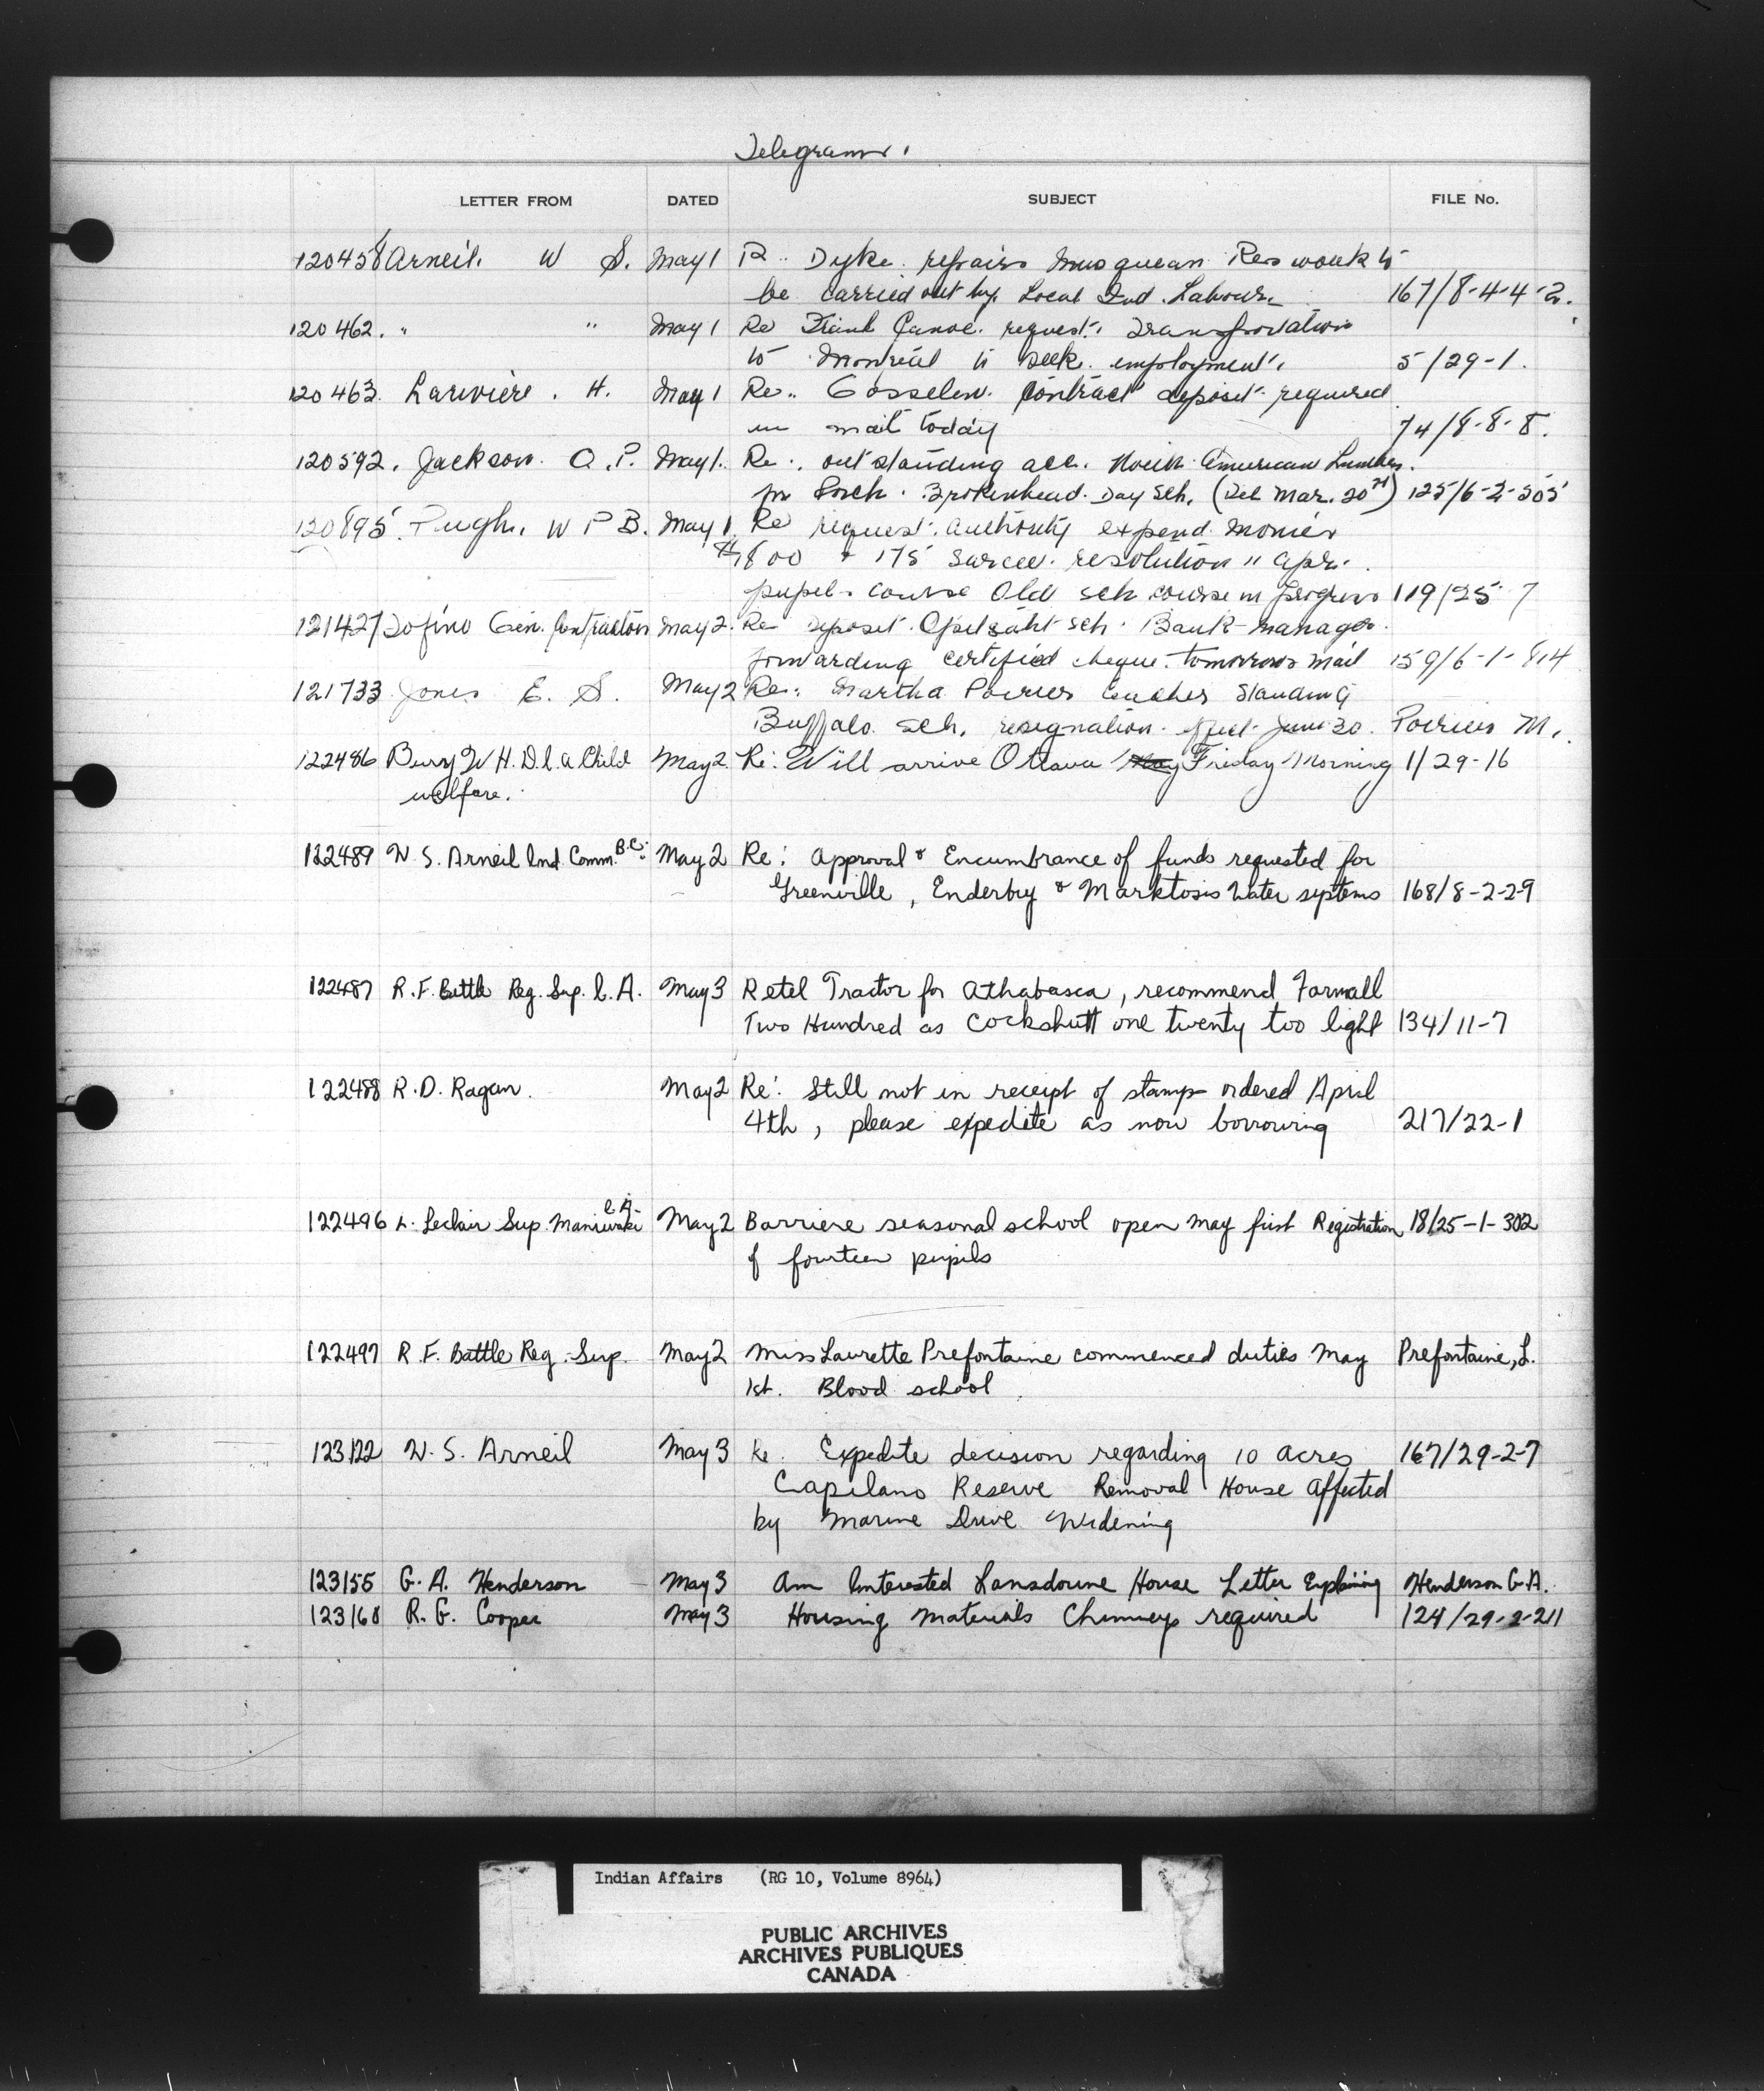 Telegrams.
LETTER FROM DATED SUBJECT FILE No.
120458 Arneil. W S. May 1 R.. Dyke repairs Musqueam Res work to
be carried out by Local Ind. Labour. 167/8-4-4-2.
120462. " " May 1 Re Frank Canoe. request. transportation
to Montreal to seek employment. 5/29-1.
120463 Lariviere. H. May 1 Re.. Gosselin. contract deposit required
in mail today 74/8-8-8.
120592. Jackson. O.P. May 1. Re. outstanding acc. North American Lumber.
for Brokenhead Day Sch. (Mar. 20) 125/6-2-505
120895. Pugh. W P B. May 1 Re request. authority expend monies
$1800 + 175 Sarcee. resolution 11 Apr.
pupil. course Old sch course in progress 119/25-7
121427 Tofino Gen. Contractors May 2. Re deposit. Opitsaht sch. Bank manager
forwarding certified cheque. tomorrows mail 159/6-1-814
121733 Jones E. S. May 2 Re.. Martha Poirier teacher Standing
Buffalo Sch. resignation. effect June 30. Poirier M.
122486 W H. D.C.A Child May 2 Re: Will arrive Ottawa May Friday Morning 1/29-16
welfare.
122489 W. S. Arneil Ind. Comm. B.C. May 2 Re: Approval & Encumbrance of funds requested for
Greenville, Enderby & Marktosis Water systems 168/8-2-2-9
122487 R.F. Battle Reg. Sup. I.A. May 3 Retel Tractor for Athabasca, recommend Farmall
Two Hundred as Cockshutt one twenty too light 134/11-7
122488 R.D. Ragan. May 2 Re: Still not in receipt of stamps ordered April
4th, please expedite as now borrowing 217/22-1
122496 L. Leclair Sup. Maniwaki I.A. May 2 Barriere seasonal school open May first Registration 18/25-1-302
of fourteen pupils
122497 R.F. Battle Reg. Sup. May 2 Miss Laurette Prefontaine commenced duties May Prefontaine, L.
1st. Blood school
123122 W. S. Arneil May 3 Re. Expedite decision regarding 10 acres 167/29-2-7
Capilano Reserve Removal House Affected
by Marine Drive Widening
123155 G. A. Henderson May 3 Am Interested Lansdowne House Letter Explaining Henderson G.A.
123168 R. G. Cooper May 3 Housing Materials Chimneys required 124/29-2-211
Indian Affairs (RG 10, Volume 8964)
PUBLIC ARCHIVES
ARCHIVES PUBLIQUES
CANADA